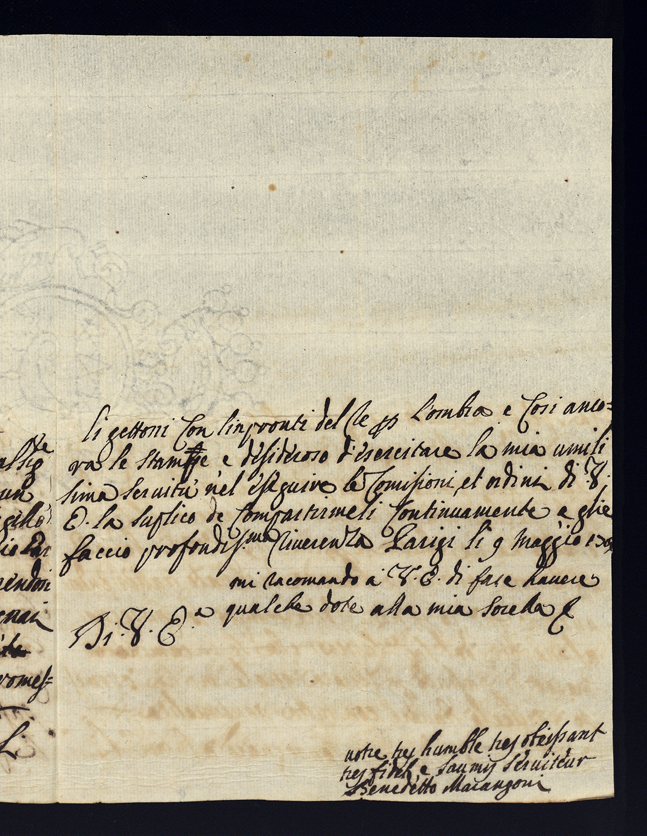 li gettoni Con linpronti del Re p Lombra e Cosi anco=
ra le stampe e desideroso d'esercitare la mia umili
sima servitù nel eseguire le Comisioni et ordini di V.
E. la suplico de Compartirmeli Continuamente e glie
faccio profondis.ma riverenza Parigi li 9 Maggio
mi racomando a V. E. di fare havere
qualche dote alla mia sorella
Di V. E.a
votre tres humble tres obeissant
tres fidele e soumis serviteur
Benedetto Marangoni